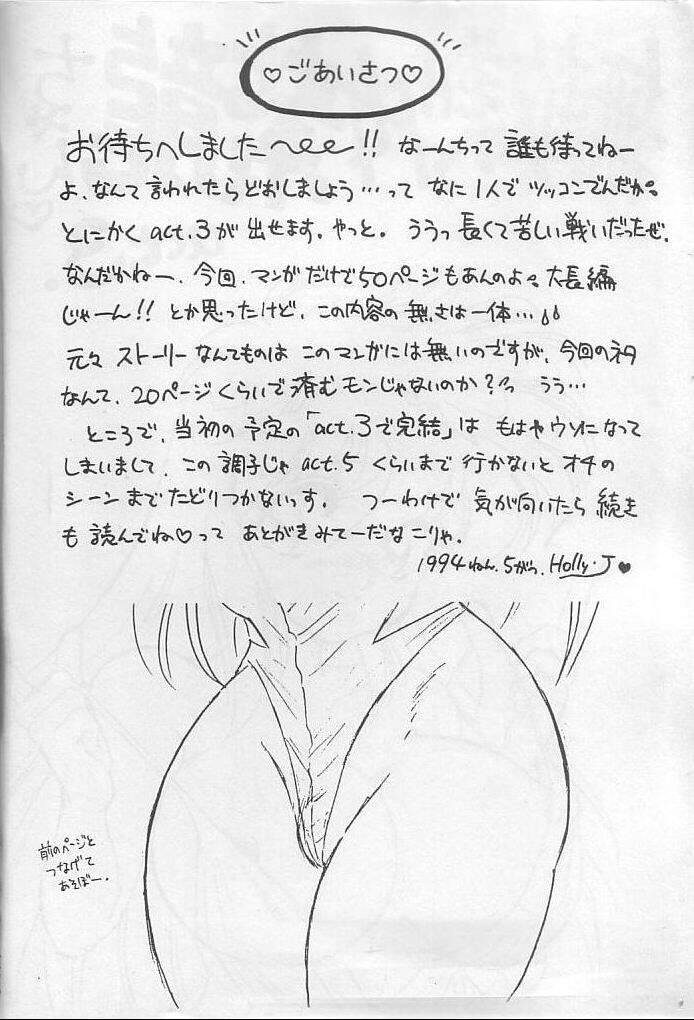 ♡ごあいさつ♡
お待ちへしました〜ee!! なーんちって 誰も待ってねー
よ、なんて言われたらどおしましょう…って なに1人で ツッコンでんだか。
とにかく act.3が 出せます。やっと。 ううっ 長くて苦しい戦いだったぜ。
なんだかねー、今回、マンガだけで50ページもあんのよ。大長編
じゃーん!! とか思ったけど、この内容の無さは一体…
元々 ストーリーなんてものは このマンガには無いのですが、今回のネタ
なんて、20ページくらいで済むモンじゃないのか? うう…
ところで、当初の予定の「act.3で完結」は もはやウソになって
しまいまして、この調子じゃ act.5 くらいまで行かないと オチの
シーンまでたどりつかないっす。 つーわけで 気が向いたら 続き
も 読んでね♡って あとがきみてーだな こりゃ。
1994ねん.5がつ. Holly・J♥
前のページと
つなげて
あそぼー。